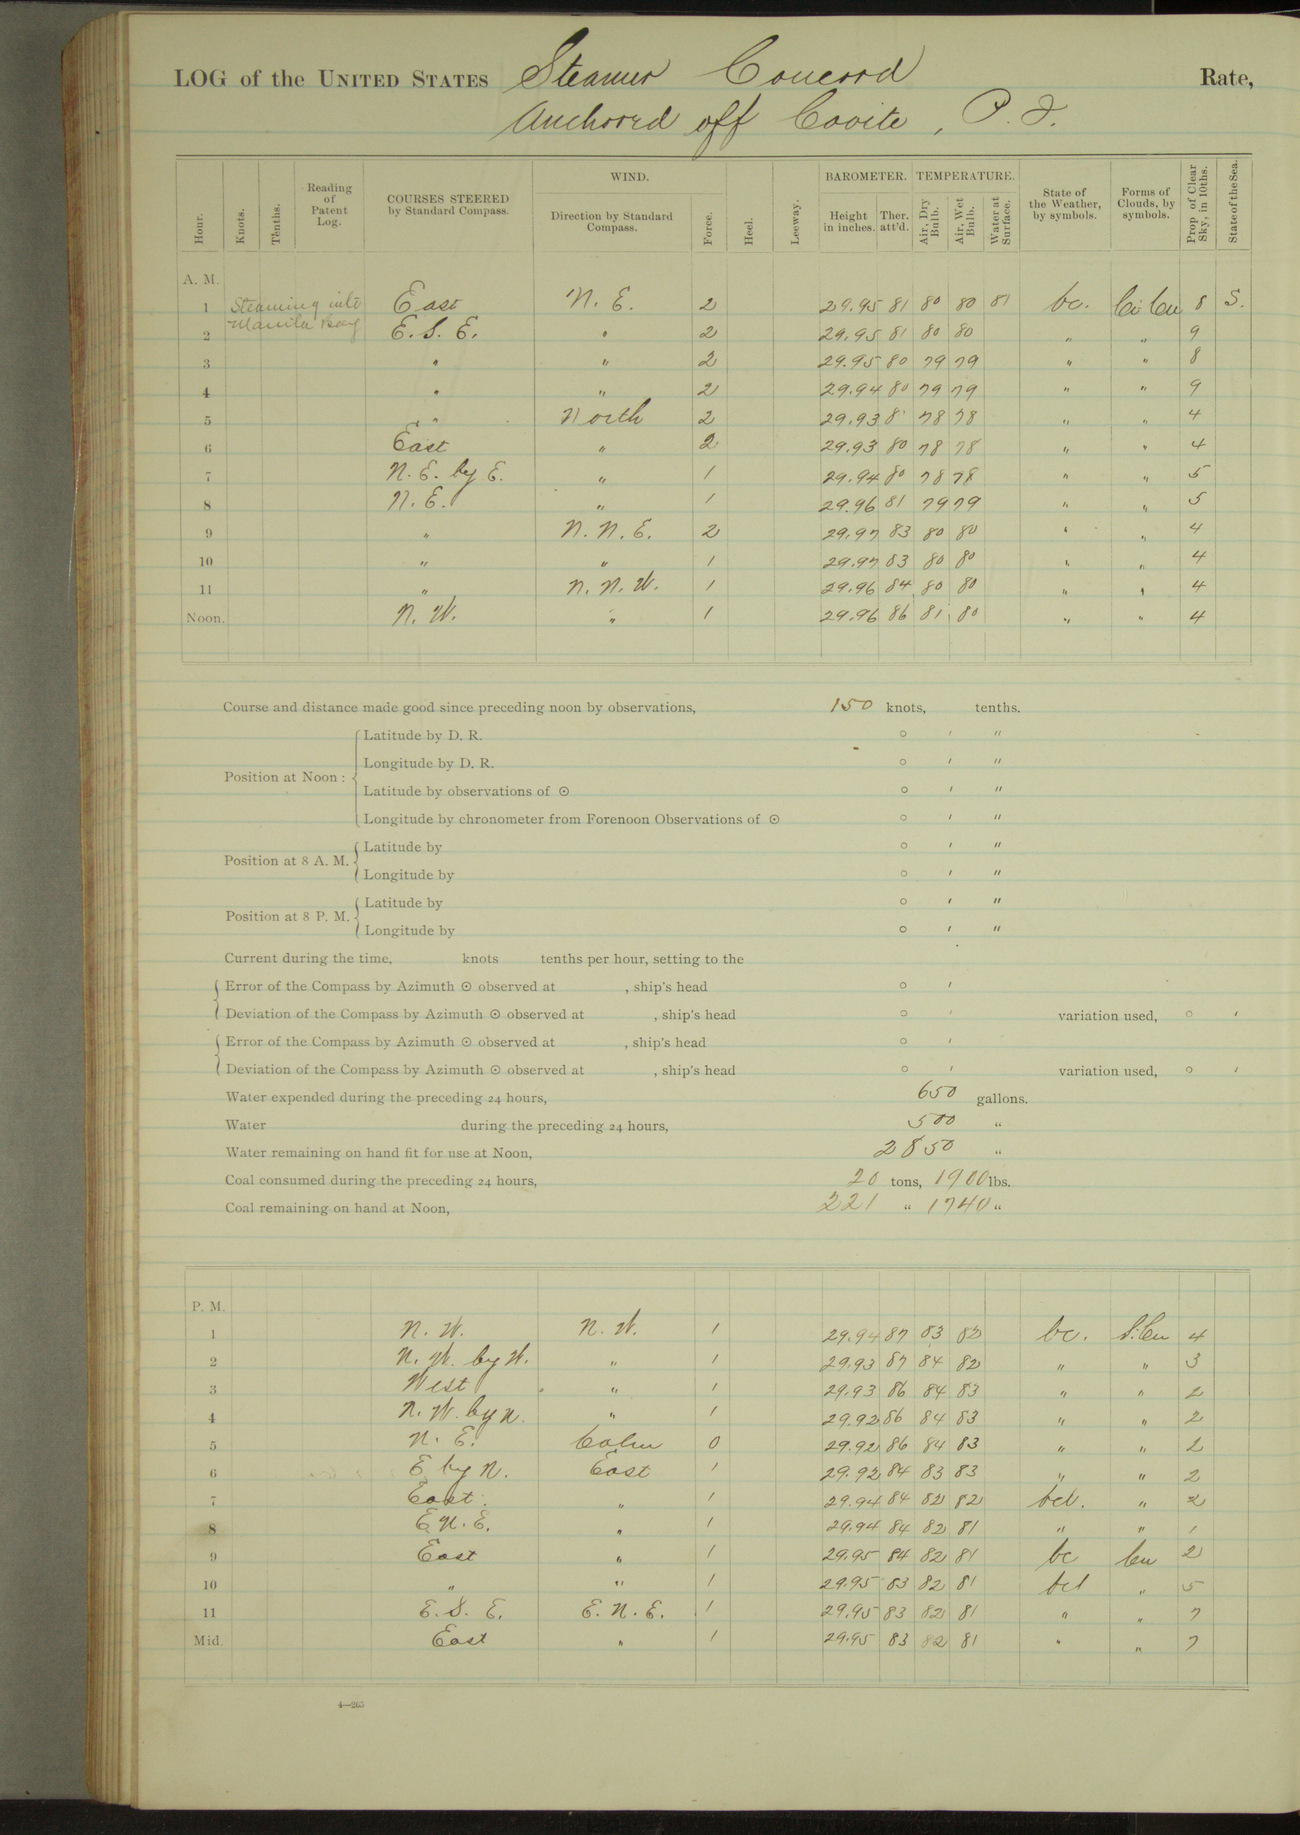 LOG of the UNITED STATES Steamer Concord Rate,
Anchored off Cavite, P. I.
Hour. Knots. Tenths. Reading of Patent Log. COURSES STEERED by Standard Compass. WIND. Direction by Standard Compass. Force. Heel. Leeway. BAROMETER. Height in inches. Ther. att'd. TEMPERATURE. Air, Dry Bulb. Air, Wet Bulb. Water at Surface. State of the Weather, by symbols. Forms of Clouds, by symbols. Prop. of Clear Sky, in 10ths. State of the Sea.
A. M.
1 Steaming into East N. E. 2 29.95 81 80 80 81 bc. Ci Cu 8 S.
2 Manila Bay E. S. E. " 2 29.95 81 80 80 " " 9
3 " " 2 29.95 80 79 79 " " 8
4 " " 2 29.94 80 79 79 " " 9
5 " North 2 29.93 78 78 " " 4
6 East " 2 29.93 80 78 78 " " 4
7 N. E. by E. " 1 29.94 80 78 78 " " 5
8 N. E. " 1 29.96 81 79 79 " " 5
9 " N. N. E. 2 29.97 83 80 80 " " 4
10 " " 1 29.97 83 80 80 " " 4
11 " N. N. W. 1 29.96 84 80 80 " " 4
Noon. N. W. " 1 29.96 86 81 80 " " 4
Course and distance made good since preceding noon by observations, 150 knots, tenths.
Position at Noon:
Latitude by D. R. ° ′ ″
Longitude by D. R. ° ′ ″
Latitude by observations of ☉ ° ′ ″
Longitude by chronometer from Forenoon Observations of ☉ ° ′ ″
Position at 8 A. M.
Latitude by ° ′ ″
Longitude by ° ′ ″
Position at 8 P. M.
Latitude by ° ′ ″
Longitude by ° ′ ″
Current during the time, knots tenths per hour, setting to the
Error of the Compass by Azimuth ☉ observed at , ship's head ° ′
Deviation of the Compass by Azimuth ☉ observed at , ship's head ° ′ variation used, ° ′
Error of the Compass by Azimuth ☉ observed at , ship's head ° ′
Deviation of the Compass by Azimuth ☉ observed at , ship's head ° ′ variation used, ° ′
Water expended during the preceding 24 hours, 650 gallons.
Water during the preceding 24 hours, 500 "
Water remaining on hand fit for use at Noon, 2850 "
Coal consumed during the preceding 24 hours, 20 tons, 1900 lbs.
Coal remaining on hand at Noon, 221 " 1740 "
P. M.
1 N. W. N. W. 1 29.94 87 83 82 bc. S.Cu 4
2 N. W. by W. " 1 29.93 87 84 82 " " 3
3 West " 1 29.93 86 84 83 " " 2
4 N. W. by N. " 1 29.92 86 84 83 " " 2
5 N. E. Calm 0 29.92 86 84 83 " " 2
6 E by N. East 1 29.92 84 83 83 " " 2
7 East. " 1 29.94 84 82 82 bcl. " 2
8 E. N. E. " 1 29.94 84 82 81 " " 1
9 East " 1 29.95 84 82 81 bc Cu 2
10 " " 1 29.95 83 82 81 bcl " 5
11 E. S. E. E. N. E. 1 29.95 83 82 81 " " 7
Mid. East " 1 29.95 83 82 81 " " 7
4—265